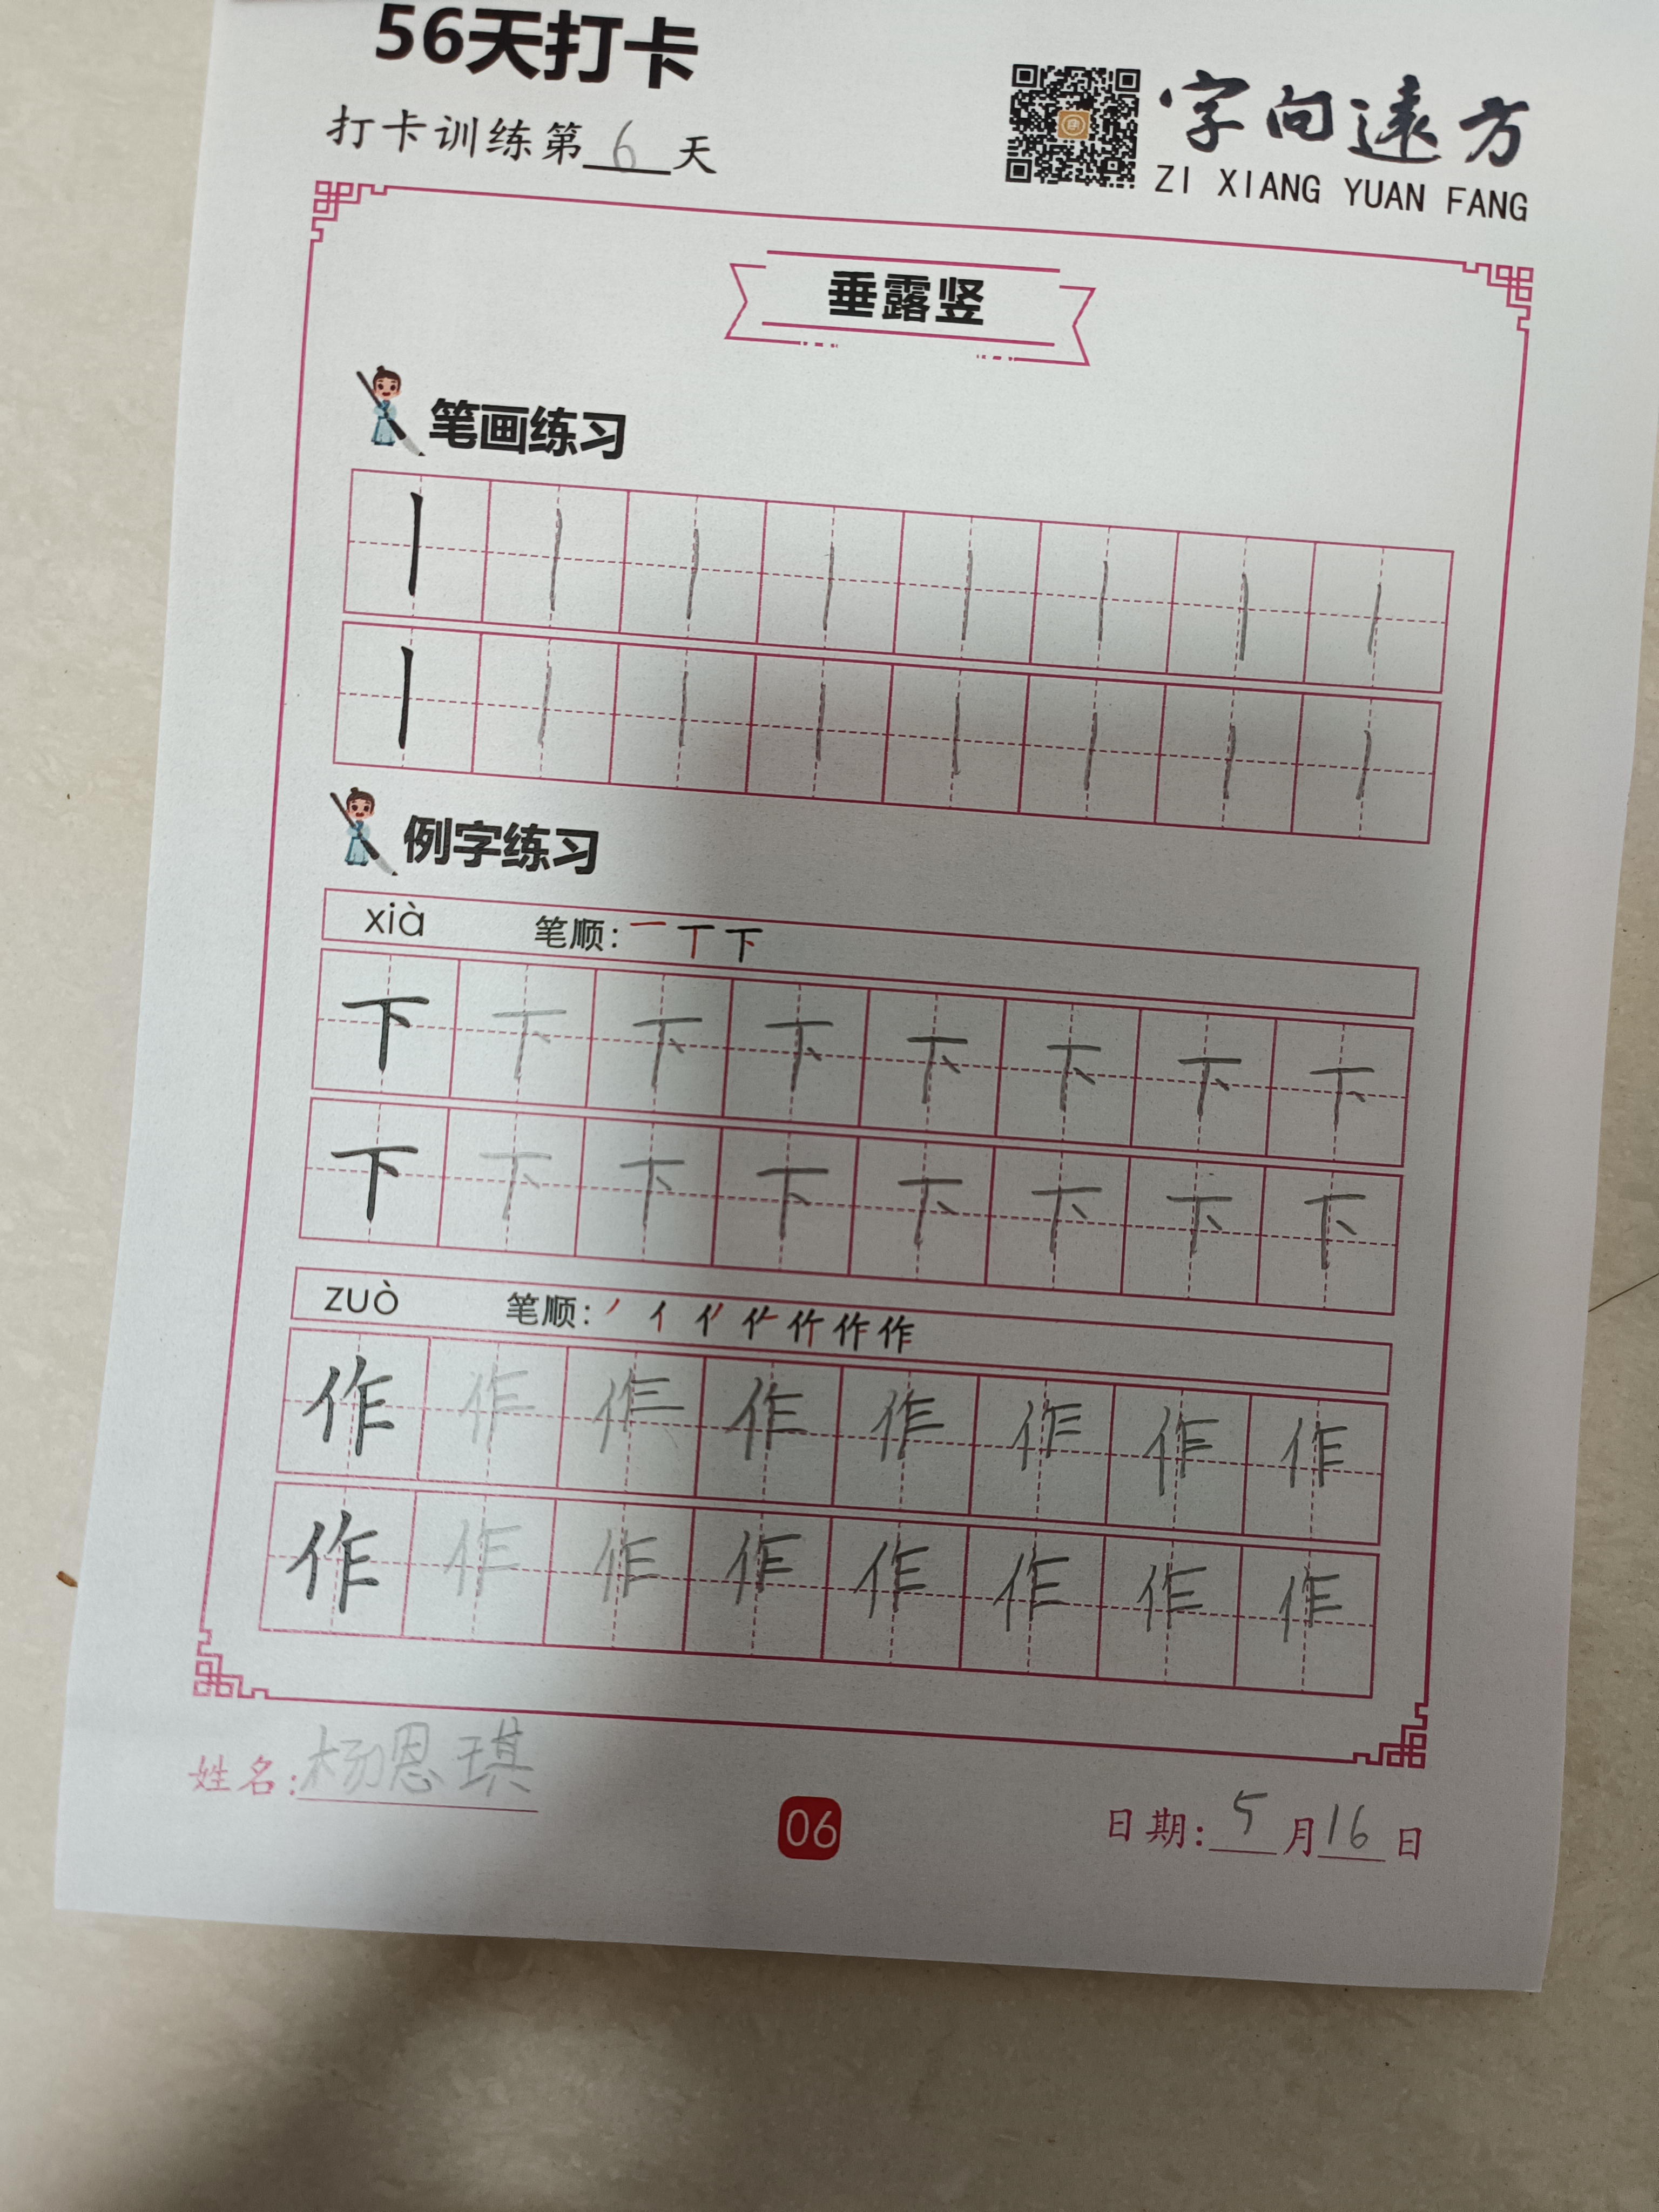 56天打卡
打卡训练第6天
字向远方
ZI XIANG YUAN FANG
垂露竖
笔画练习
丨丨丨丨丨丨丨丨
丨丨丨丨丨丨丨丨
例字练习
xià 笔顺:一丅下
下下下下下下下下
下下下下下下下下
zuò 笔顺:
作作作作作作作作
作作作作作作作作
姓名:杨恩琪
06
日期:5月16日